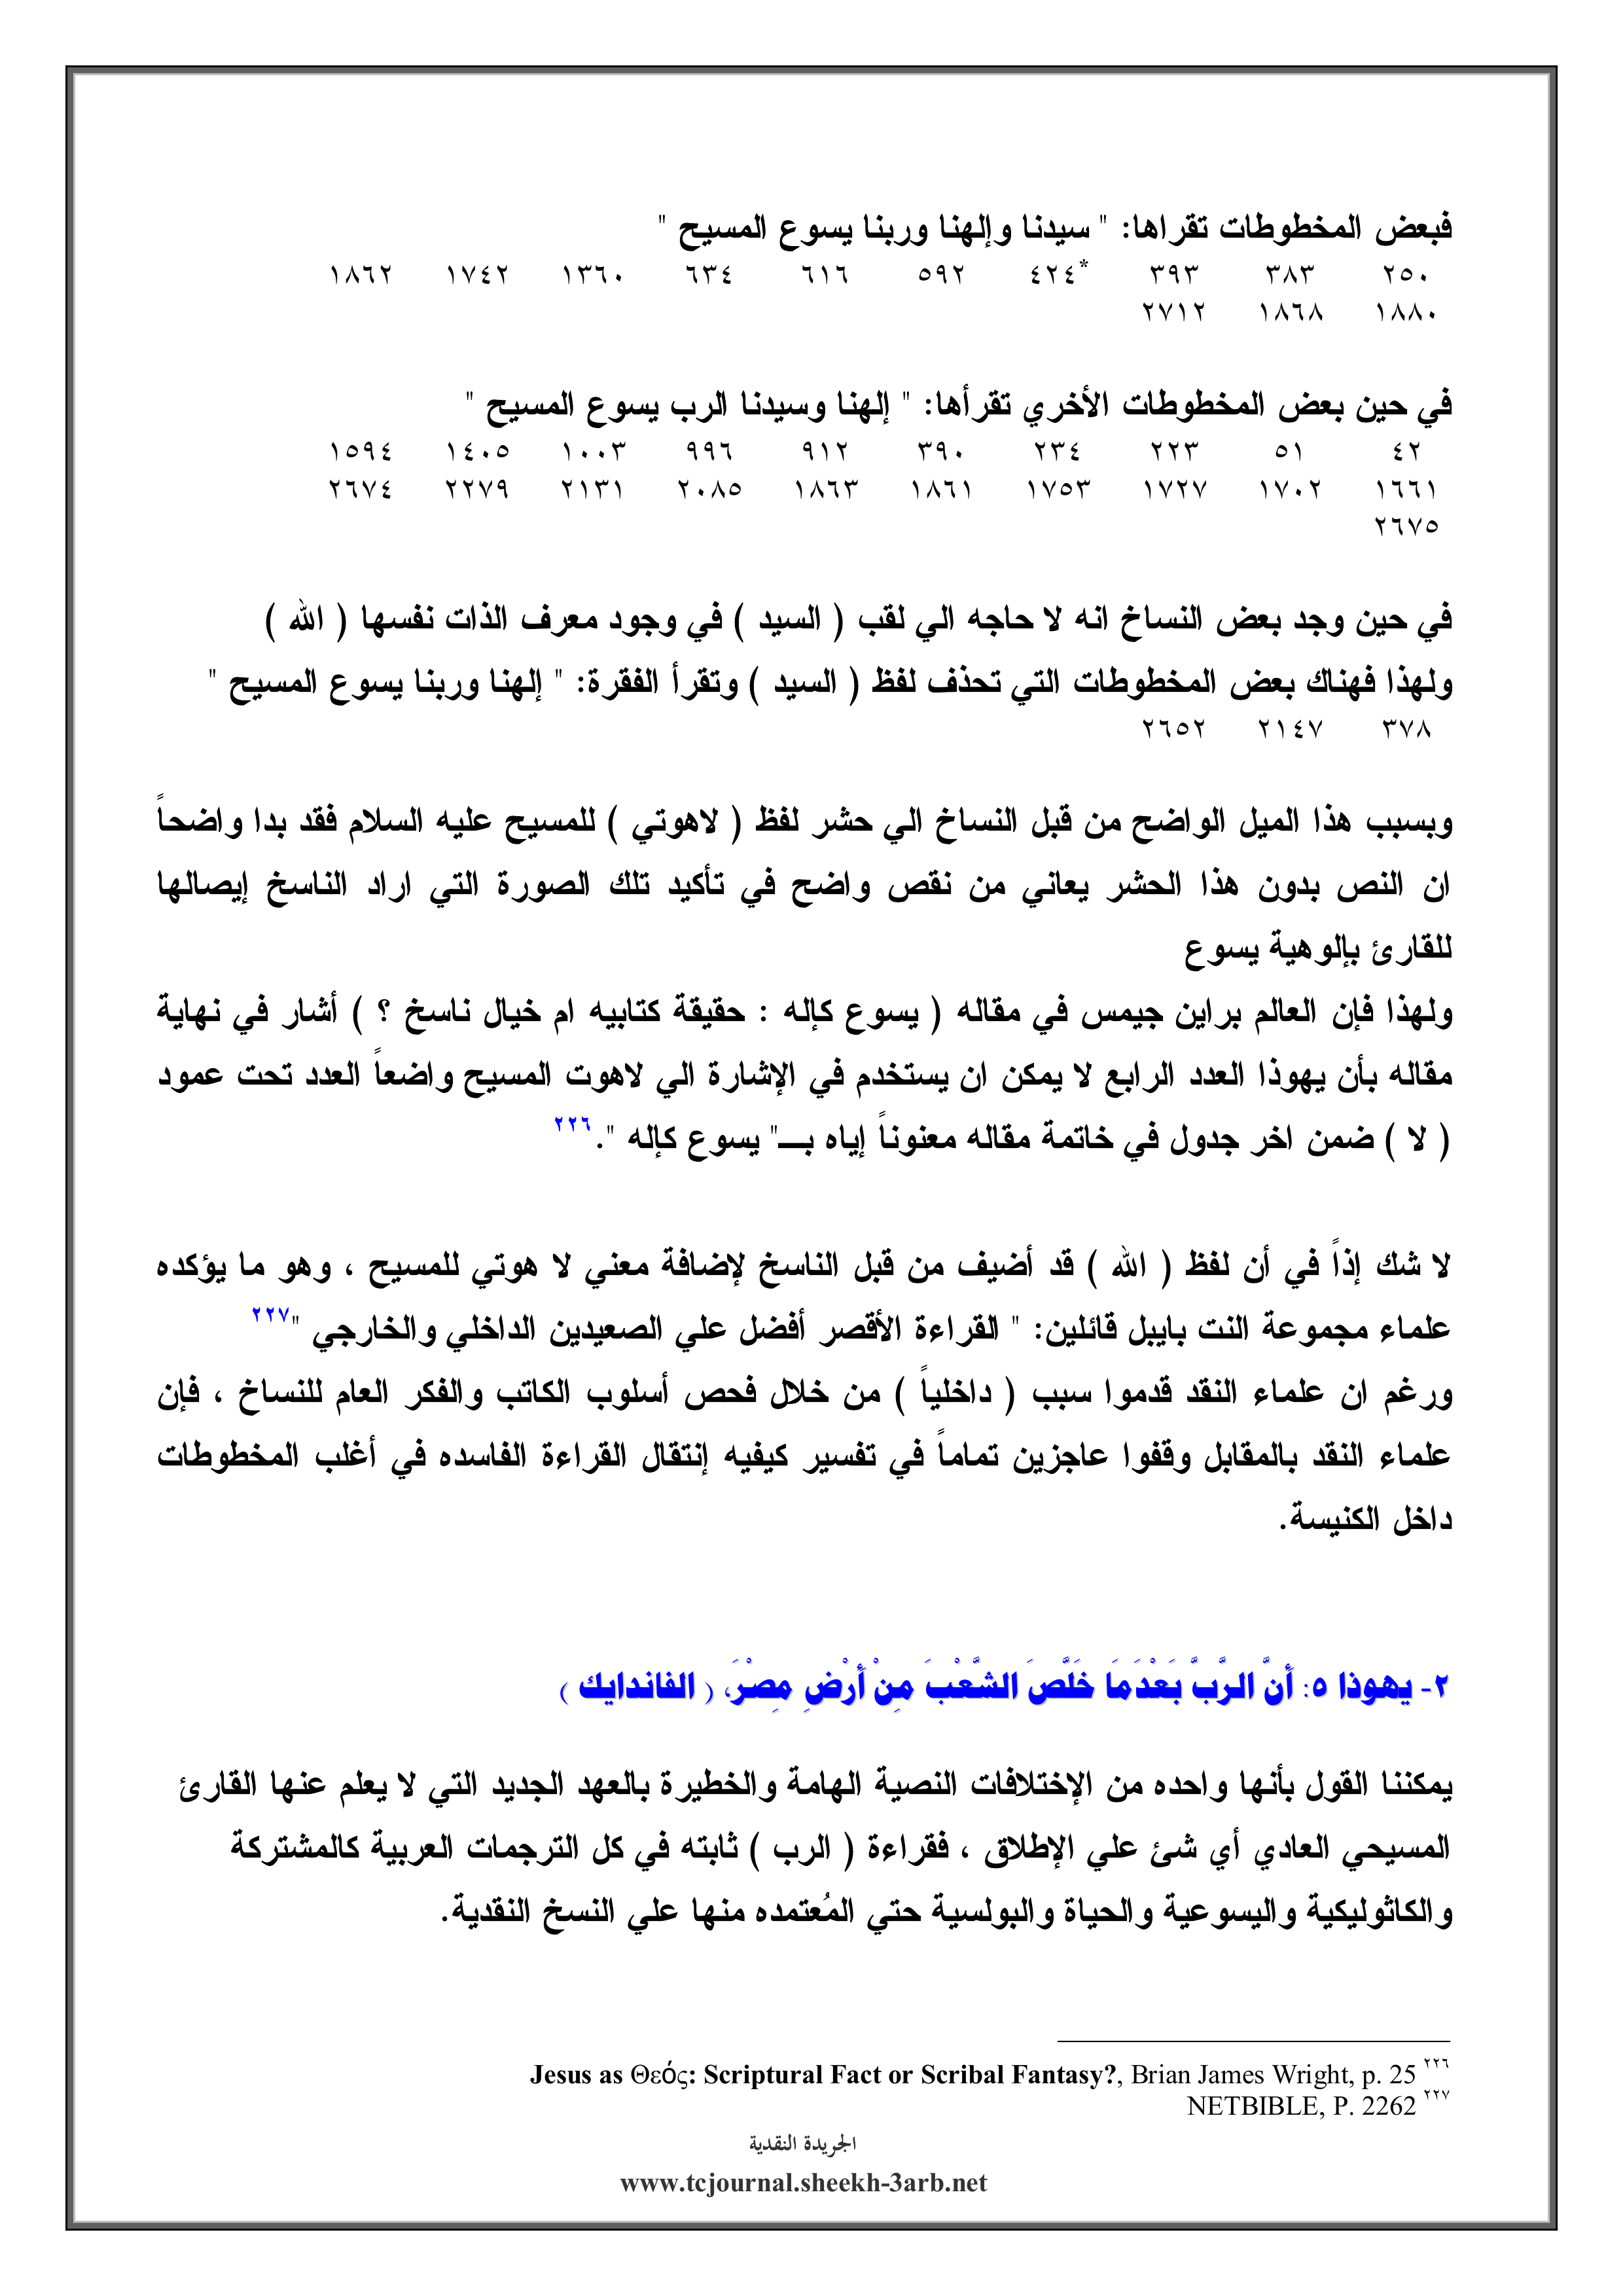 فبعض المخطوطات تقراها: " سيدنا وإلهنا وربنا يسوع المسيح "
٢٥٠ ٣٨٣ ٣٩٣ ٤٢٤* ٥٩٢ ٦١٦ ٦٣٤ ١٣٦٠ ١٧٤٢ ١٨٦٢
١٨٨٠ ١٨٦٨ ٢٧١٢
في حين بعض المخطوطات الأخري تقرأها: " إلهنا وسيدنا الرب يسوع المسيح "
٤٢ ٥١ ٢٢٣ ٢٣٤ ٣٩٠ ٩١٢ ٩٩٦ ١٠٠٣ ١٤٠٥ ١٥٩٤
١٦٦١ ١٧٠٢ ١٧٢٧ ١٧٥٣ ١٨٦١ ١٨٦٣ ٢٠٨٥ ٢١٣١ ٢٢٧٩ ٢٦٧٤
٢٦٧٥
في حين وجد بعض النساخ انه لا حاجه الي لقب ( السيد ) في وجود معرف الذات نفسها ( الله )
ولهذا فهناك بعض المخطوطات التي تحذف لفظ ( السيد ) وتقرأ الفقرة: " إلهنا وربنا يسوع المسيح "
٣٧٨ ٢١٤٧ ٢٦٥٢
وبسبب هذا الميل الواضح من قبل النساخ الي حشر لفظ ( لاهوتي ) للمسيح عليه السلام فقد بدا واضحاً
ان النص بدون هذا الحشر يعاني من نقص واضح في تأكيد تلك الصورة التي اراد الناسخ إيصالها
للقارئ بإلوهية يسوع
ولهذا فإن العالم براين جيمس في مقاله ( يسوع كإله : حقيقة كتابيه ام خيال ناسخ ؟ ) أشار في نهاية
مقاله بأن يهوذا العدد الرابع لا يمكن ان يستخدم في الإشارة الي لاهوت المسيح واضعاً العدد تحت عمود
( لا ) ضمن اخر جدول في خاتمة مقاله معنوناً إياه بـــ" يسوع كإله ".٢٢٦
لا شك إذاً في أن لفظ ( الله ) قد أضيف من قبل الناسخ لإضافة معني لا هوتي للمسيح ، وهو ما يؤكده
علماء مجموعة النت بايبل قائلين: " القراءة الأقصر أفضل علي الصعيدين الداخلي والخارجي "٢٢٧
ورغم ان علماء النقد قدموا سبب ( داخلياً ) من خلال فحص أسلوب الكاتب والفكر العام للنساخ ، فإن
علماء النقد بالمقابل وقفوا عاجزين تماماً في تفسير كيفيه إنتقال القراءة الفاسده في أغلب المخطوطات
داخل الكنيسة.
٢- يهوذا ٥: أَنَّ الرَّبَّ بَعْدَمَا خَلَّصَ الشَّعْبَ مِنْ أَرْضِ مِصْرَ، ( الفاندايك )
يمكننا القول بأنها واحده من الإختلافات النصية الهامة والخطيرة بالعهد الجديد التي لا يعلم عنها القارئ
المسيحي العادي أي شئ علي الإطلاق ، فقراءة ( الرب ) ثابته في كل الترجمات العربية كالمشتركة
والكاثوليكية واليسوعية والحياة والبولسية حتي المُعتمده منها علي النسخ النقدية.
٢٢٦ Jesus as Θεός: Scriptural Fact or Scribal Fantasy?, Brian James Wright, p. 25
٢٢٧ NETBIBLE, P. 2262
الجريدة النقدية
www.tcjournal.sheekh-3arb.net